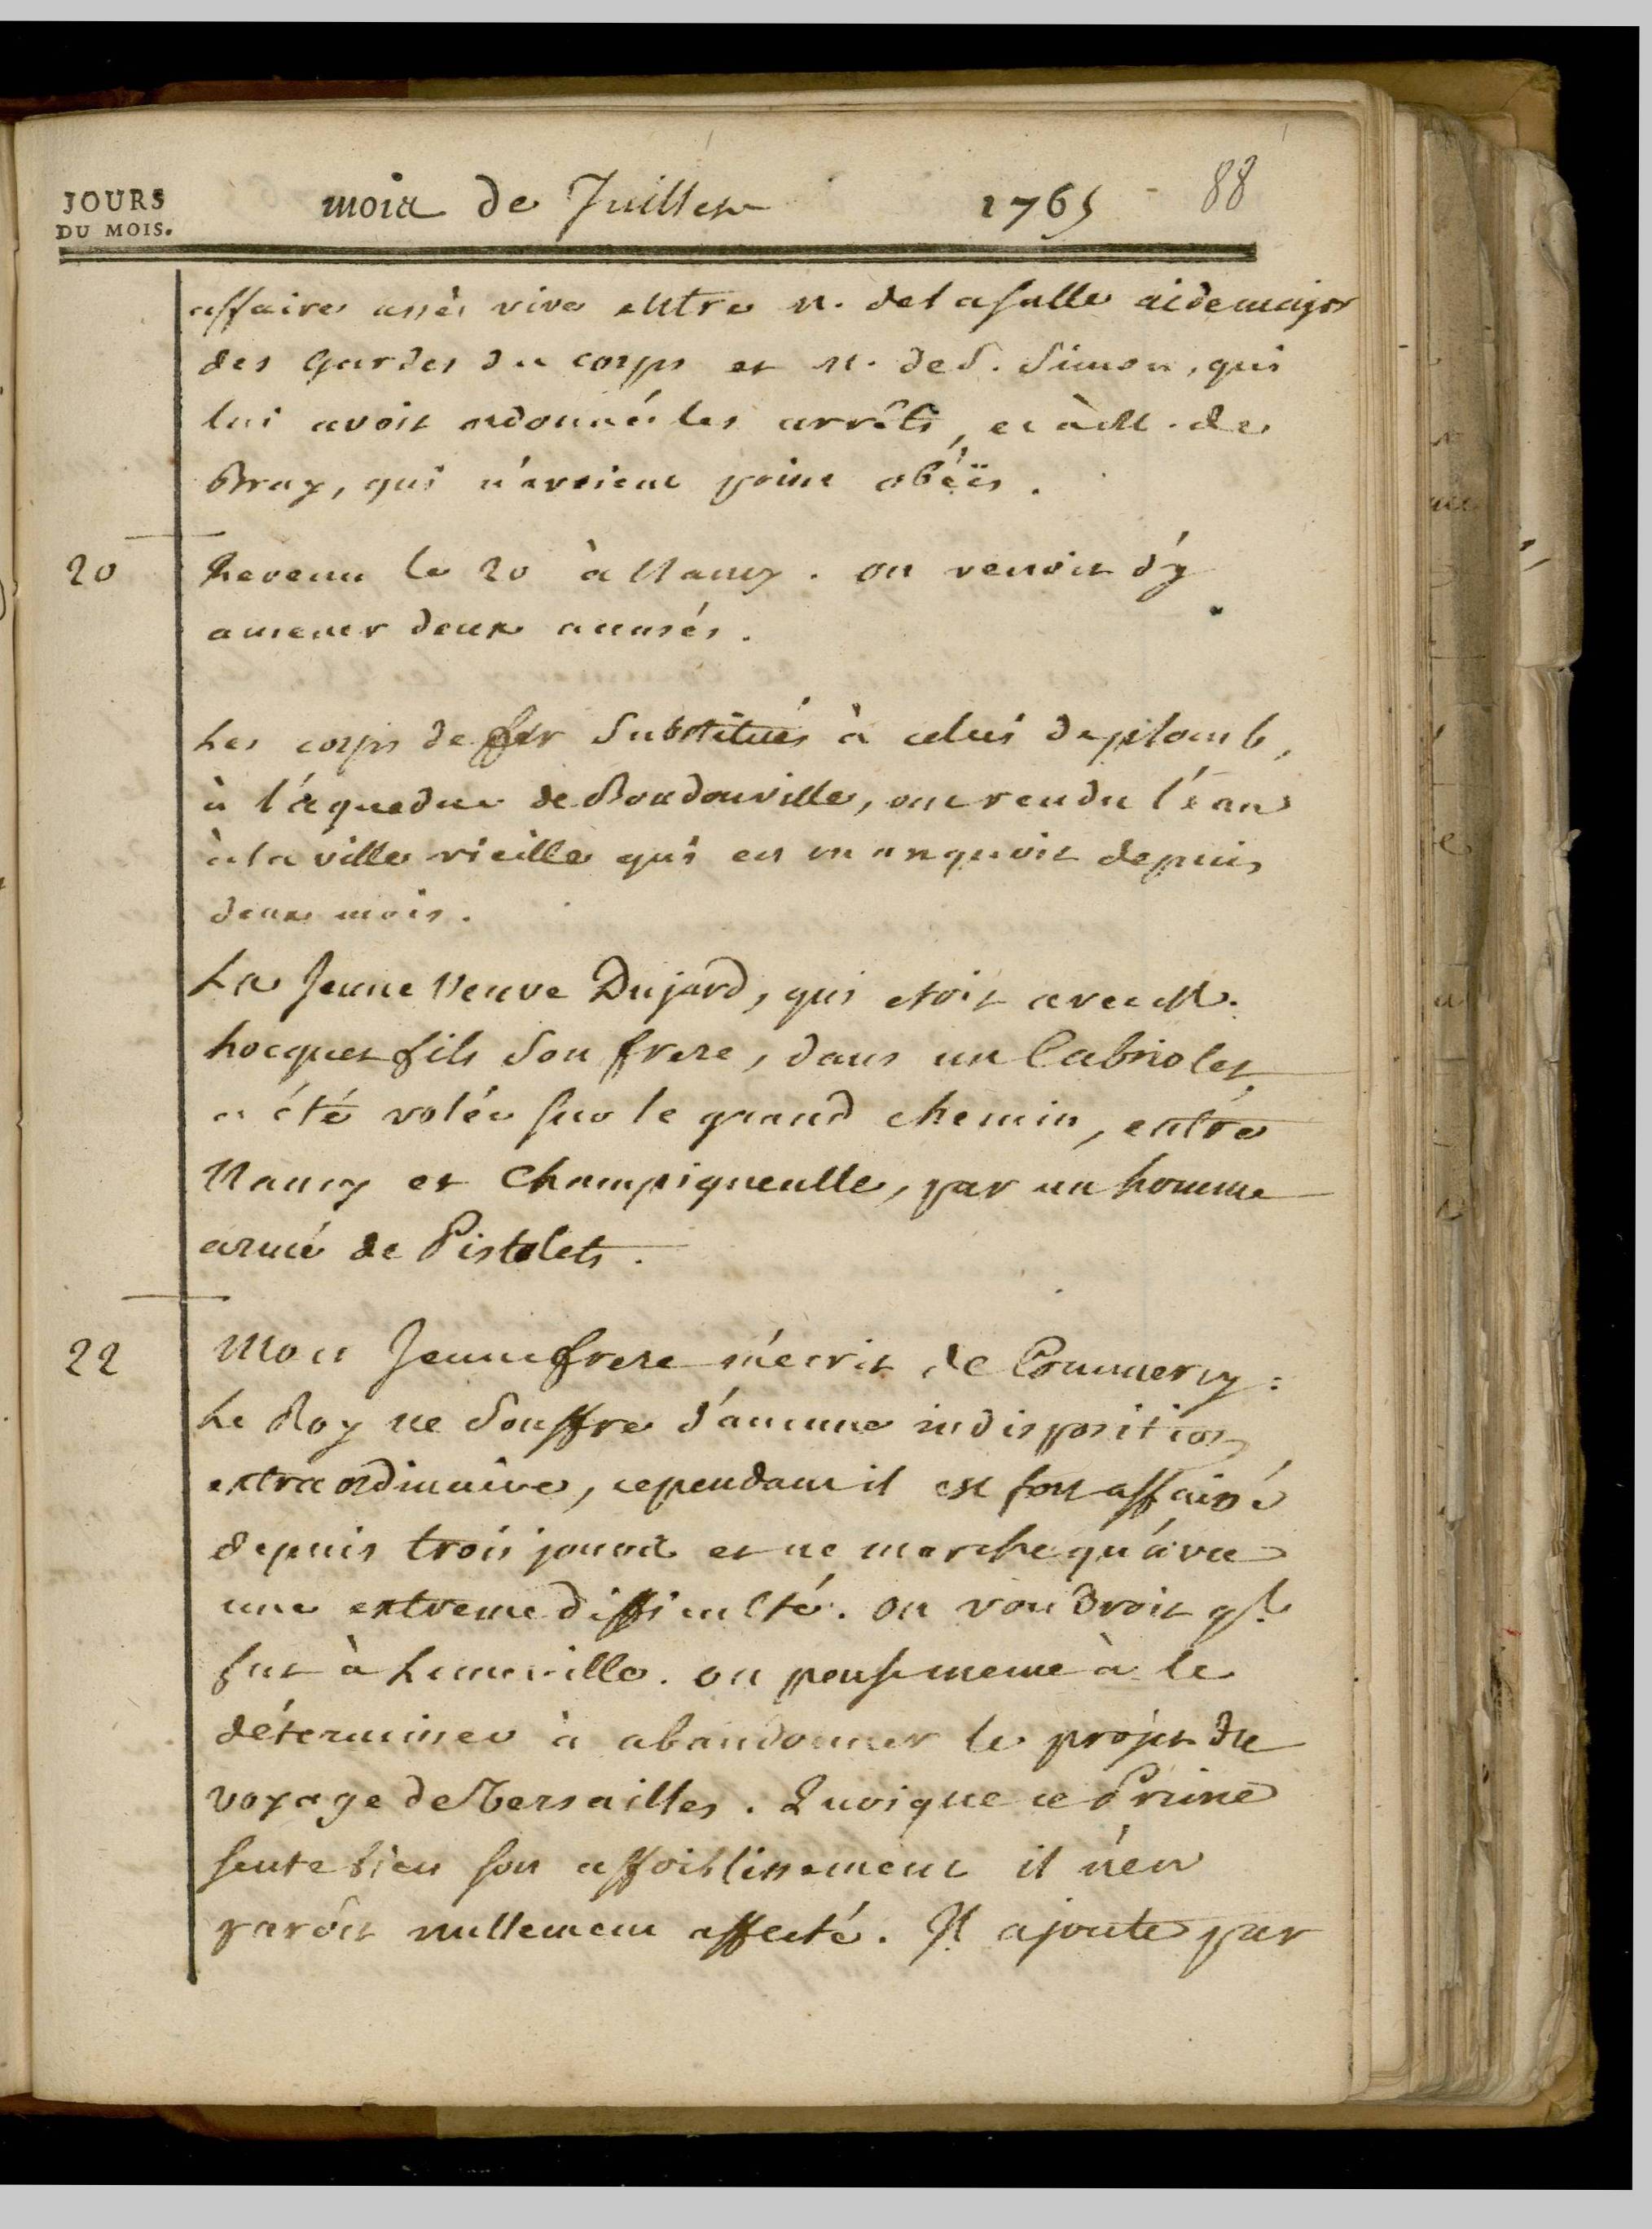 JOURS
DU MOIS.
mois de Juillet 1765 88
affaire assès vive entre M. de la salle aide major
des Gardes du corps et M. de S. Simon, qui
lui avoit ordonné les arrêts, et à M. de
Bray, qui n'avoient point obéïs.
20 Revenu le 20 à Nancy. on venoit d'y
amener deux accusés.
Les corps de fer substitués à celui de plomb,
à l'aqueduc de Boudonville, ont rendu l'eau
à la ville vieille qui en manquoit depuis
deux mois.
La Jeune Veuve Dujard, qui etoit avec M.
hocquet fils son frere, dans un Cabriolet
a été volée sur le grand chemin, entre
Nancy et Champigneulle, par un homme
armé de Pistolets.
22 Mon Jeune frere m'ecrit de Commercy:
Le Roy ne souffre d'aucune indisposition
extraordinaire, cependant il est fort affaissé
depuis trois jours et ne marche qu'avec
une extreme difficulté. on voudroit ql
fut à Luneville. on pense meme à le
déterminer à abandonner le projet du
voyage de Versailles. Quoique ce Prince
sente bien son affoiblissement il n'en
paroît nullement affecté. Il ajoute par